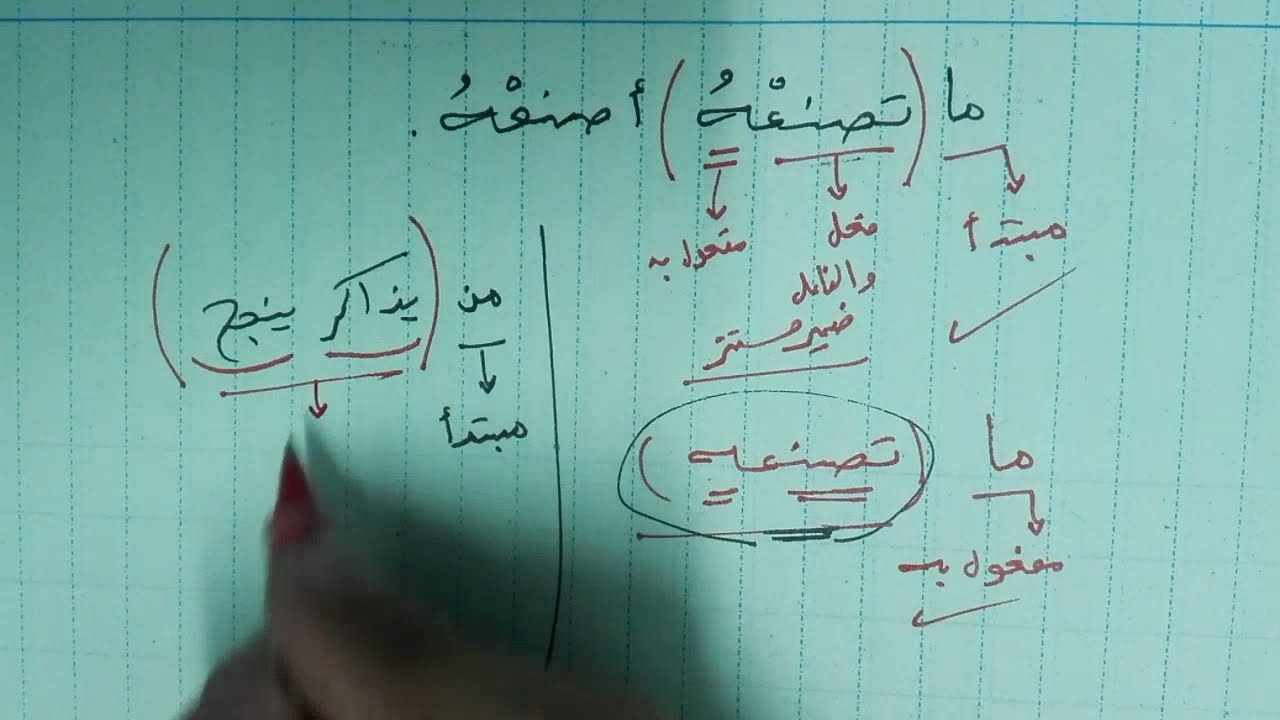 ما (تصنعْهُ) أصنعْهُ .
مبتدأ
فعل
والفاعل
ضمير مستتر
مفعول به
ما (تصنعه)
مفعول به
من (يذاكر ينجح)
مبتدأ